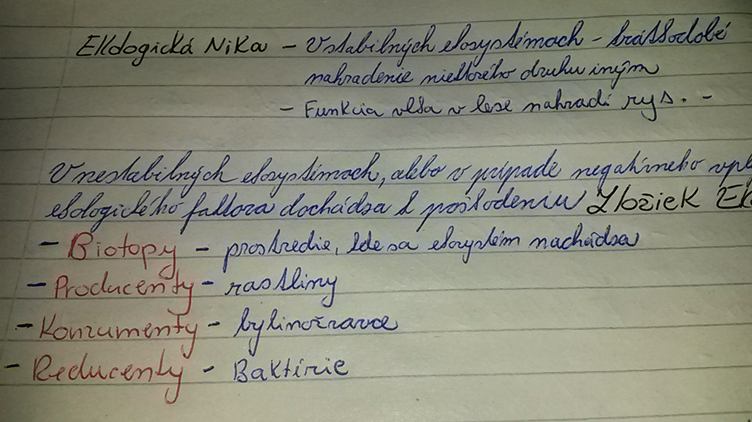 Ekologická Nika - V stabilných ekosystémach - krátkodobé
nahradenie niektorého druhu iným
- Funkcia vlka v lese nahradí rys. -
V nestabilných ekosystémoch, alebo v prípade negatívneho
ekologického faktora dochádza k poškodeniu Zložiek
- Biotopy - prostredie, kde sa ekosystém nachádza
- Producenty - rastliny
- Konzumenty - bylinožravce
- Reducenty - Baktérie